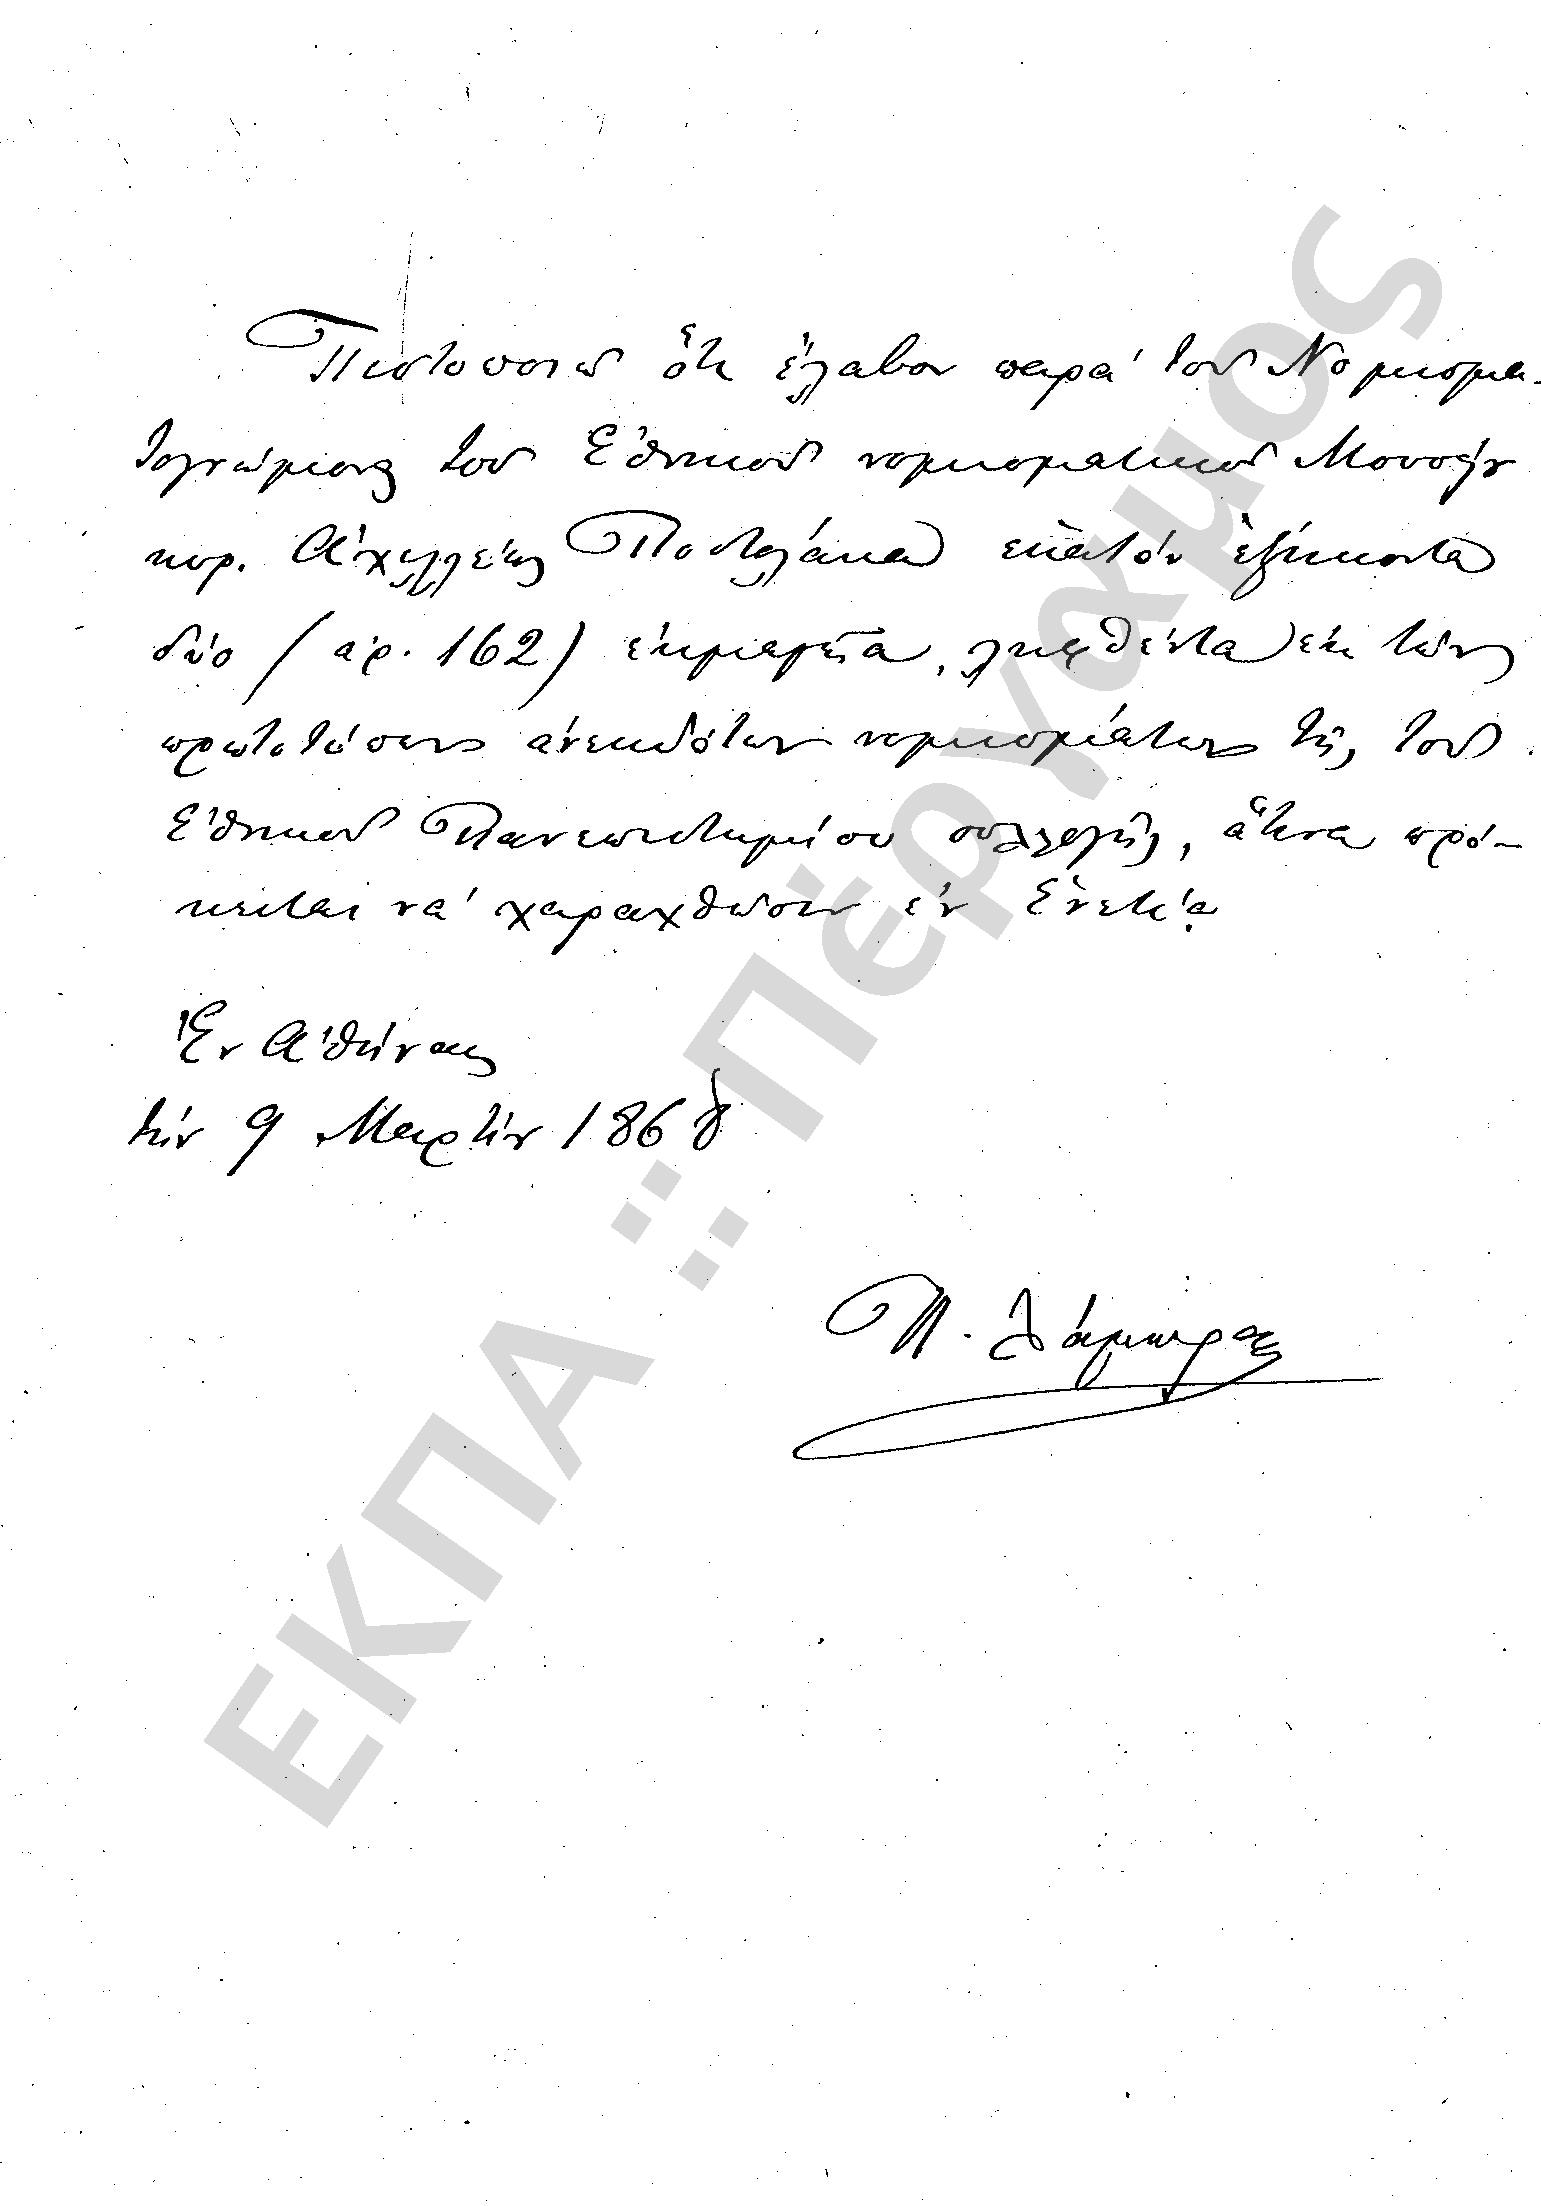 Πιστοποιῶ ὅτι ἔλαβον παρὰ τοῦ Νομισμα-
τογνώμονος τοῦ Ἐθνικοῦ νομισματικοῦ Μουσείου
κυρ. Ἀχιλλέως Ποστολάκα ἑκατὸν ἑξήκοντα
δύο (ἀρ. 162) ἐκμαγεῖα, ληφθέντα ἐκ τῶν
πρωτοτύπων ἀνεκδότων νομισμάτων τῆς τοῦ
Ἐθνικοῦ Πανεπιστημίου συλλογῆς, ἅτινα πρό-
κειται νὰ χαραχθῶσιν ἐν Ἑνετίᾳ
Ἐν Ἀθήναις
τὴν 9 Μαρτίου 1868
Π. Λάμπρος
ΕΚΠΑ :: Πέργαμος